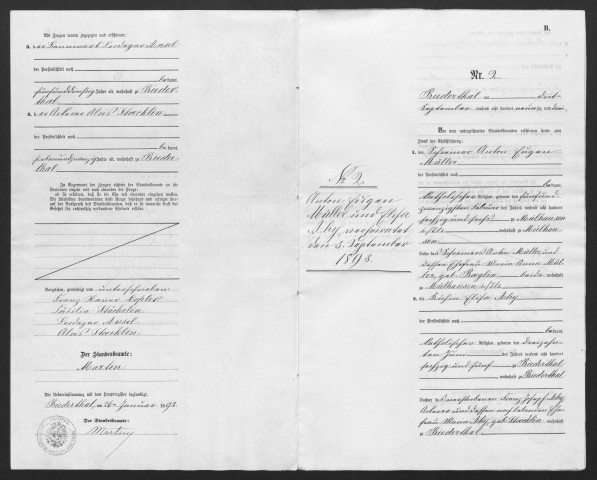 Als Zeugen waren zugezogen und erschienen:
3. der Bannwart Leodegar Ansel
der Persönlichkeit nach
kannt,
fünfunddreißig Jahre alt, wohnhaft zu Bieder-
thal
4. der Ackerer Alois Stoecklen
der Persönlichkeit nach
kannt,
Jahre alt, wohnhaft zu Bieder
thal.
In Gegenwart der Zeugen richtete der Standesbeamte an die
Verlobten einzeln und nach einander die Frage:
ob sie erklären, daß sie die Ehe mit einander eingehen wollen.
Die Verlobten beantworteten diese Frage bejahend und erfolgte
hierauf der Ausspruch des Standesbeamten, daß er sie nunmehr kraft des
Gesetzes für rechtmäßig verbundene Eheleute erkläre.
Vorgelesen, genehmigt und unterschrieben
Franz Xaver
Cäcilia Stöcklen
Leodegar Ansel
Alois Stoecklen
Der Standesbeamte:
Martin
Die Uebereinstimmung mit dem Hauptregister beglaubigt
Biederthal, am 26ten Januar 1893.
Der Standesbeamte:
Martin
No 2
Anton Eugen
Müller und Elisa
Aby, verheiratet
den 3. September
1893.
B.
Nr. 2
Biederthal am dritten
September tausend acht hundert neunzig und drei.
Vor dem unterzeichneten Standesbeamten erschienen heute, zum
Zweck der Eheschließung:
1. der Schreiner Anton Eugen
Müller
der Persönlichkeit nach
kannt,
katholischer Religion, geboren den fünfund-
zwanzigsten Februar des Jahres tausend acht hundert
sechzig und sechs zu Mülhausen
i/Els., wohnhaft zu Mülhau-
sen
Sohn des Schreiners Anton Müller und
dessen Ehefrau Maria Anna Mül-
ler, geb. beide wohnhaft
zu Mülhausen i/Els.
2. die Elisa Aby
der Persönlichkeit nach
kannt,
katholischer Religion, geboren den dreizehn-
ten Juni des Jahres tausend acht hundert
sechzig und fünf zu Biederthal
, wohnhaft zu Biederthal
Tochter des verstorbenen Franz Josef Aby,
Ackerer und dessen noch lebenden Ehe-
frau Maria Aby, geb. Stoecklen wohnhaft
zu Biederthal